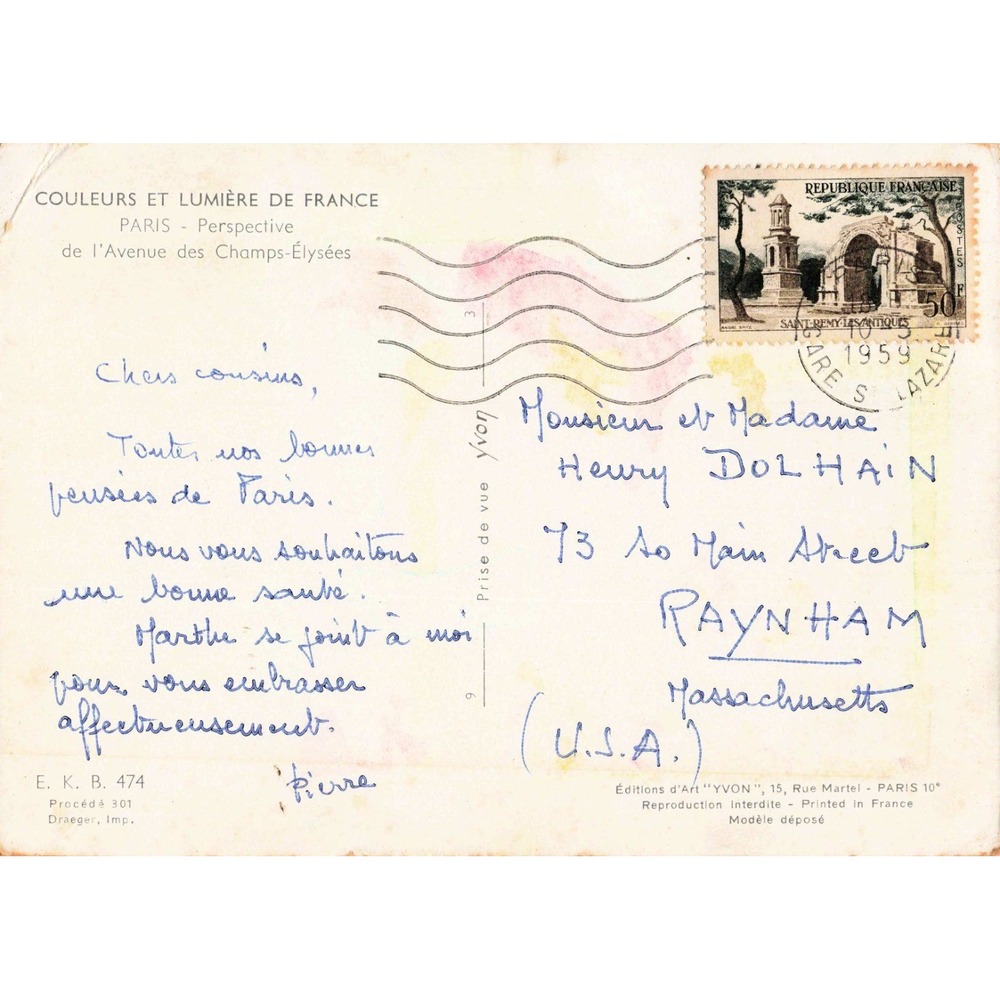 COULEURS ET LUMIÈRE DE FRANCE
PARIS - Perspective
de l'Avenue des Champs-Élysées
Chers cousins,
Toutes nos bonnes
pensées de Paris.
Nous vous souhaitons
une bonne santé.
Marthe se joint à moi
pour vous embrasser
affectueusement.
Pierre
E. K. B. 474
Procédé 301
Draeger, Imp.
9 Prise de vue Yvon 3
REPUBLIQUE FRANÇAISE
POSTES
50F
SAINT-REMY-LES ANTIQUES
1959
GARE ST LAZARE
Monsieur et Madame
Henry DOLHAIN
73 So Main Street
RAYNHAM
Massachusetts
(U.S.A.)
Éditions d'Art "YVON", 15, Rue Martel - PARIS 10e
Reproduction interdite - Printed in France
Modèle déposé